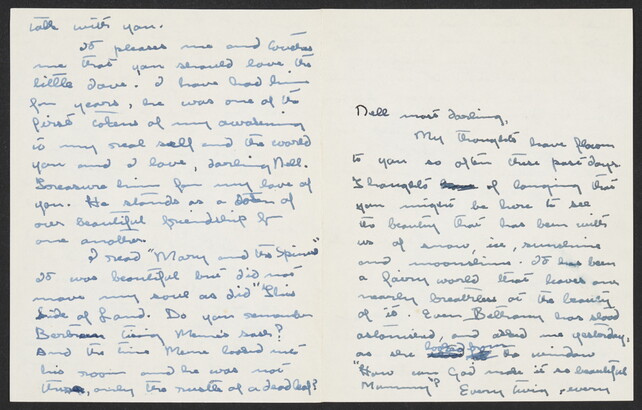 talk with you.
It pleases me and touches
me that you should love the
little dove. I have had him
for years, he was one of the
first tokens of my awakening
to my real self and the world
you and I love, darling Nell.
I treasure him for my love of
you. He stands as a token of
our beautiful friendship to
one another.
I read "Mary and the Spinner"
It was beautiful but did not
move my soul as did "This
Side of Land. Do you remember
Bertram tiring Meme's sash?
And the time Meme looked into
his room and he was not
there, only the rustle of a dead leaf?
Nell most darling,
My thoughts have flown
to you so often these past days.
Thoughts of longing that
you might be here to see
the beauty that has been with
us of snow, ice, sunshine
and moonshine. It has been
a fairy world that leaves one
nearly breathless at the beauty
of it. Even Beltramy has stood
astonished, and asked me yesterday,
as she looked from the window
"How can God make it so beautiful
Mummy"? Every twig, every